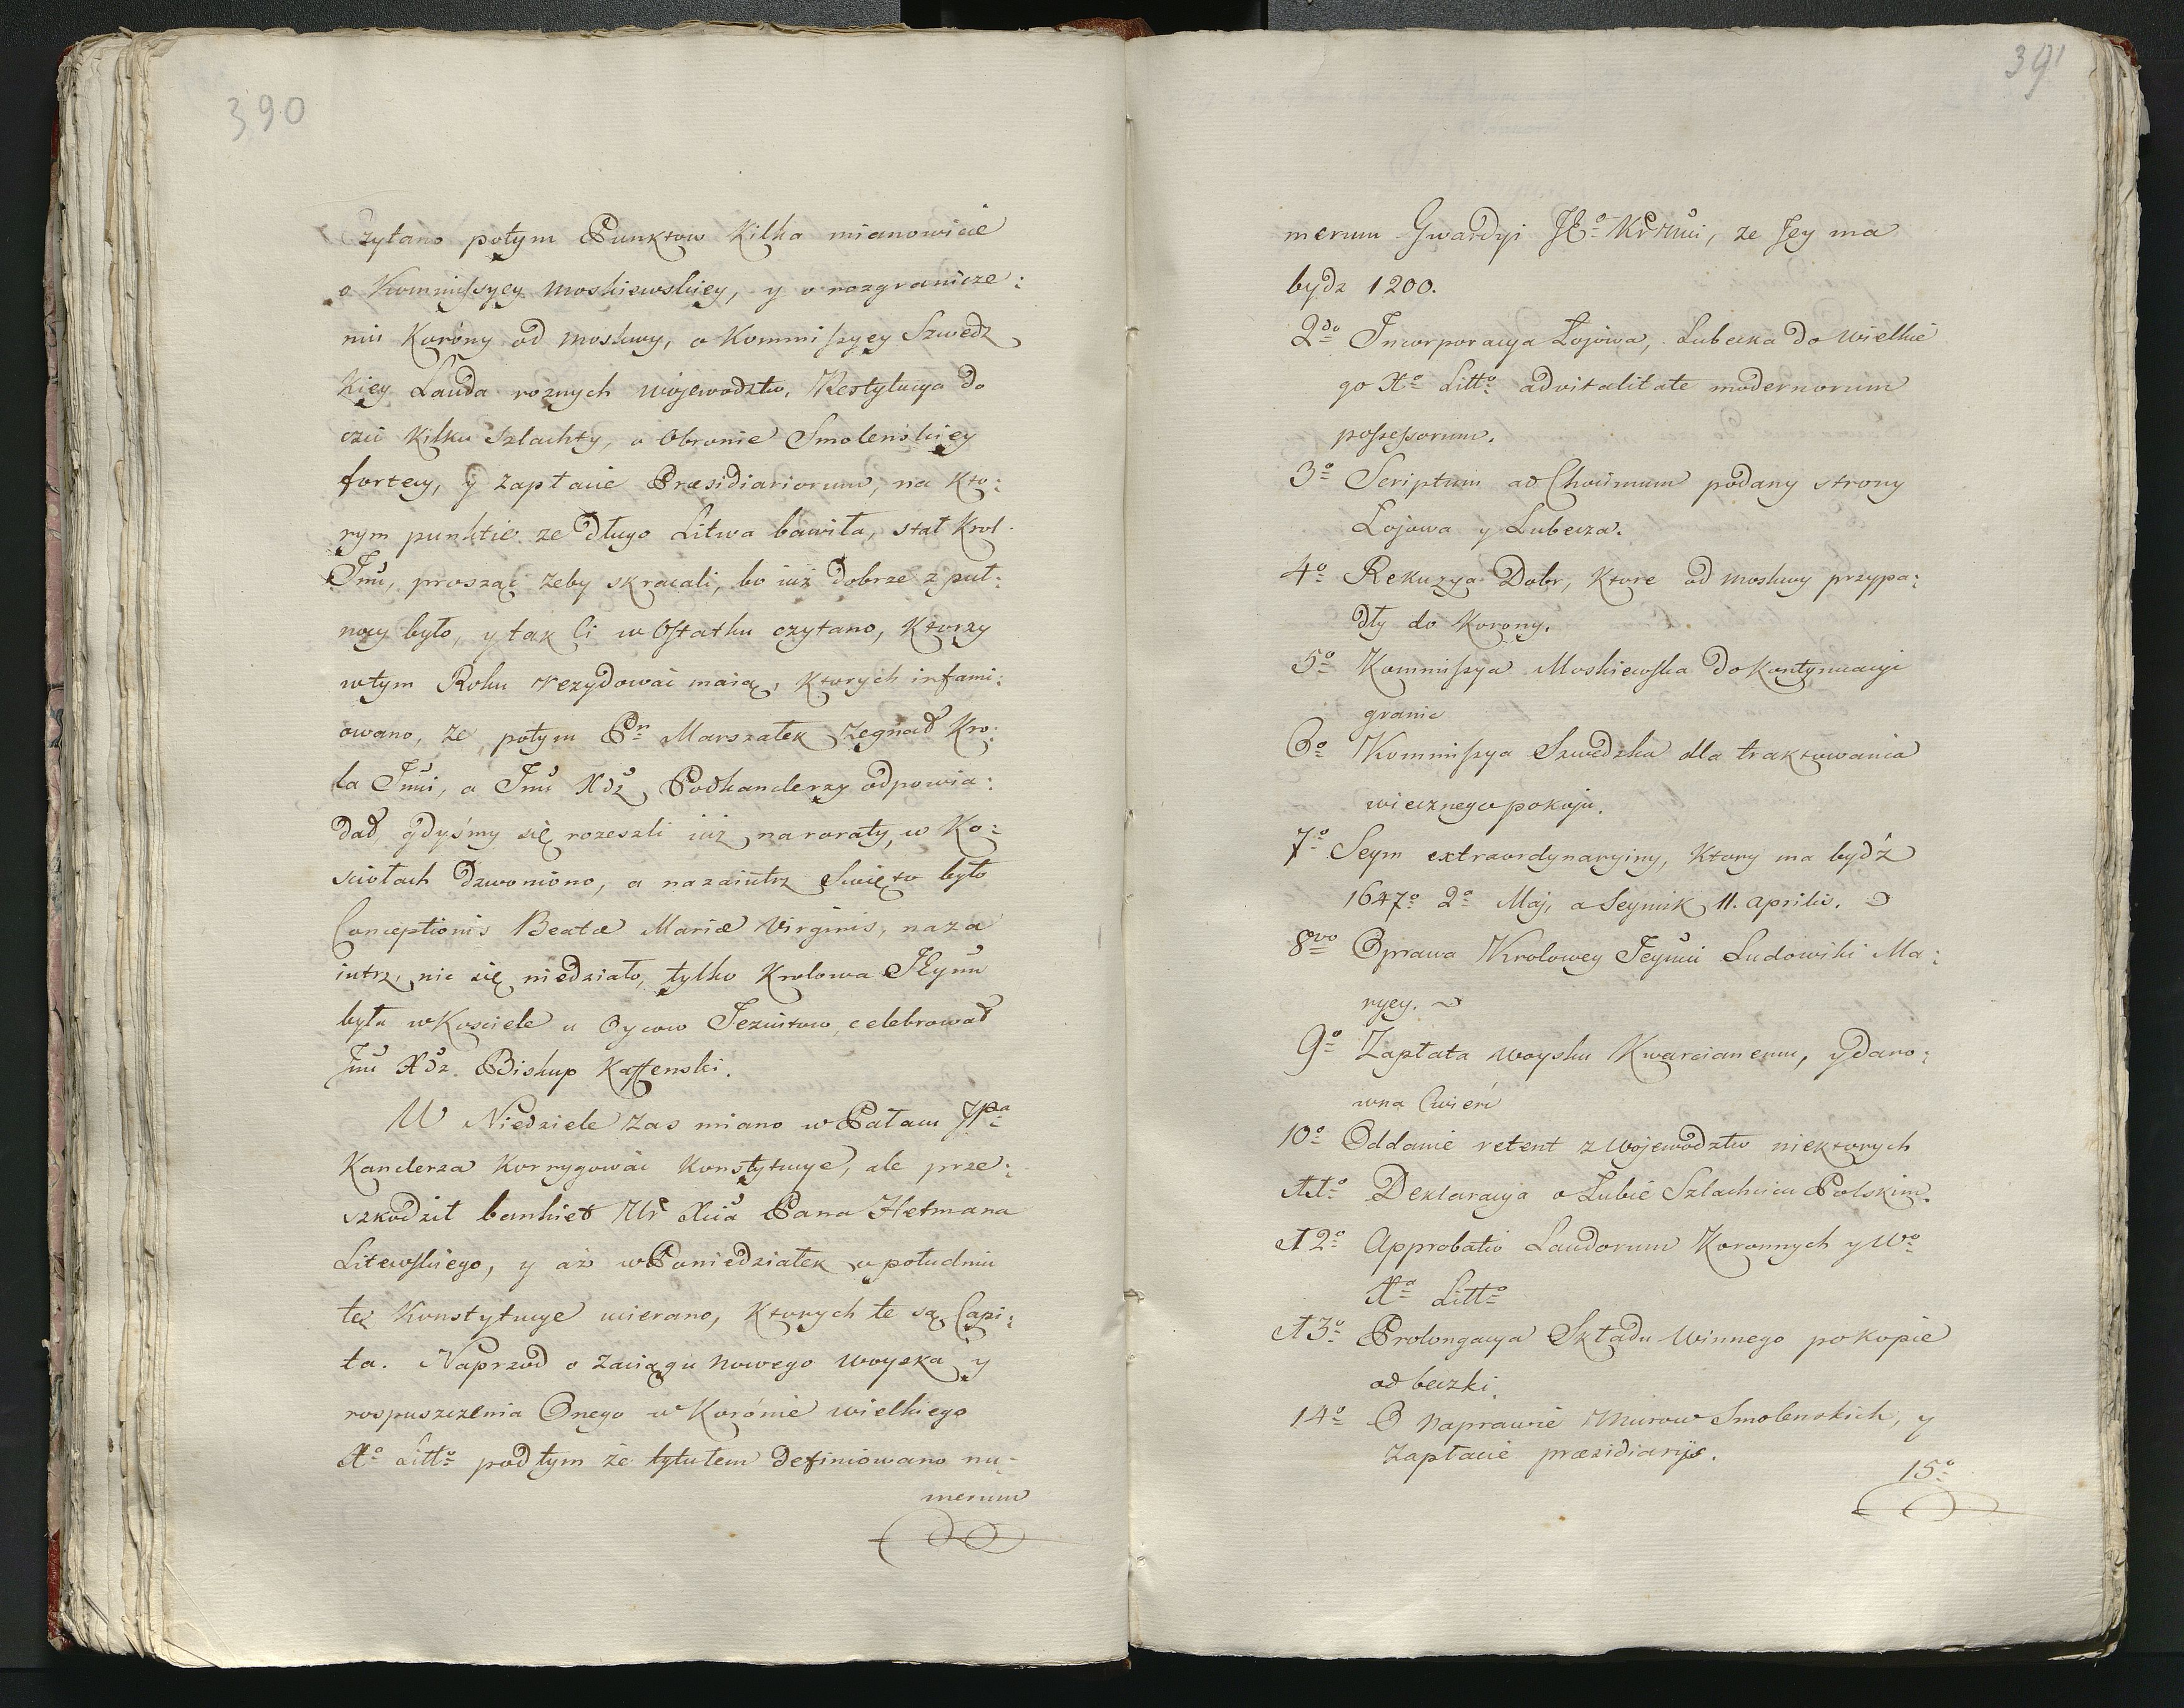 390
Czytano potym Punktow Kilka mianowicie
o Kommissyey Moskiewskiey, y o rozgranicze:
niu Korony od Moskwy, o Kommissyey Szwedz
kiey Lauda roznych wojewodztw, Restytucya do
czci Kilku Szlachty, o Obronie Smolenskiey
fortecy, y zapłacie Præsidiariorum, na Kto:
rym punktie ze długo Litwa bawiła, stał Krol
Jmć, prosząc zeby skracali, bo iuż dobrze z puł:
nocy było, y tak Ci w Ostatku czytano, Ktorzy
w tym Roku rezydować maią, Ktorych infami:
owano, że potym Pn Marszałek żegnał Kro:
la Jmci, a Jmć Xdz Podkanclerzy odpowia:
dał, gdyśmy się rozeszli iuż na roraty, w Ko:
sciołach dzwoniono, a nazaiutrz Swięto było
Conceptionis Beatæ Mariæ Virginis, naza
iutrz nic się niedziało, tylko Krolowa JEymć
była w Kosciele u Oycow Jezuitow, celebrował
Jmć Xdz. Biskup Kaffenski.
W Niedziele zas miano w Pałacu JPa
Kanclerza Korrygować Konstytucye, ale prze:
szkodził bankiet Xcia Pana Hetmana
Litewskiego, y aż w Poniedziałek o południu
te Konstytucye ucierano, Ktorych te są Capi:
ta. Naprzod o zaciągu nowego woyska y
rospuszczenia Onego w Koronie wielkiego
Xo Litto pod tym że tytułem definiowano nu:
merum
391
merum Gwardyi JEo KrMci, ze Jey ma
bydz 1200.
2do Inkorporacya Łojowa, Lubecza do Wielkie
go Xo Litto advitalitate modernorum
possessorum.
3o Scriptum ad Archivum podany strony
Łojowa y Lubecza.
4o Rekuzya Dobr, Ktore od Moskwy przypa:
dły do Korony.
5o Kommissya Moskiewska do Kontynuacyi
granic
6o Kommissya Szwedzka dla traktowania
wiecznego pokoju.
7o Seym extraordynaryiny, Ktory ma bydź
1647o 2o Maj, a Seymik 11. Aprilis.
8vo Oprawa Krolowey Jeymci Ludowiki Ma:
ryey.
9o Zapłata woysku Kwarcianemu, y daro:
wna Cwierć
10o Oddanie retent z Wojewodztw niektorych
11o Deklaracyja o Ślubie Szlachcicu Polskim.
12o Approbatio Laudorum Koronnych y Wo
Xa Litto
13o Prolongacya Składu Winnego po Kopie
od beczki.
14o O Naprawie Murow Smolenskich, y
zapłacie præsidiarijs.
15o